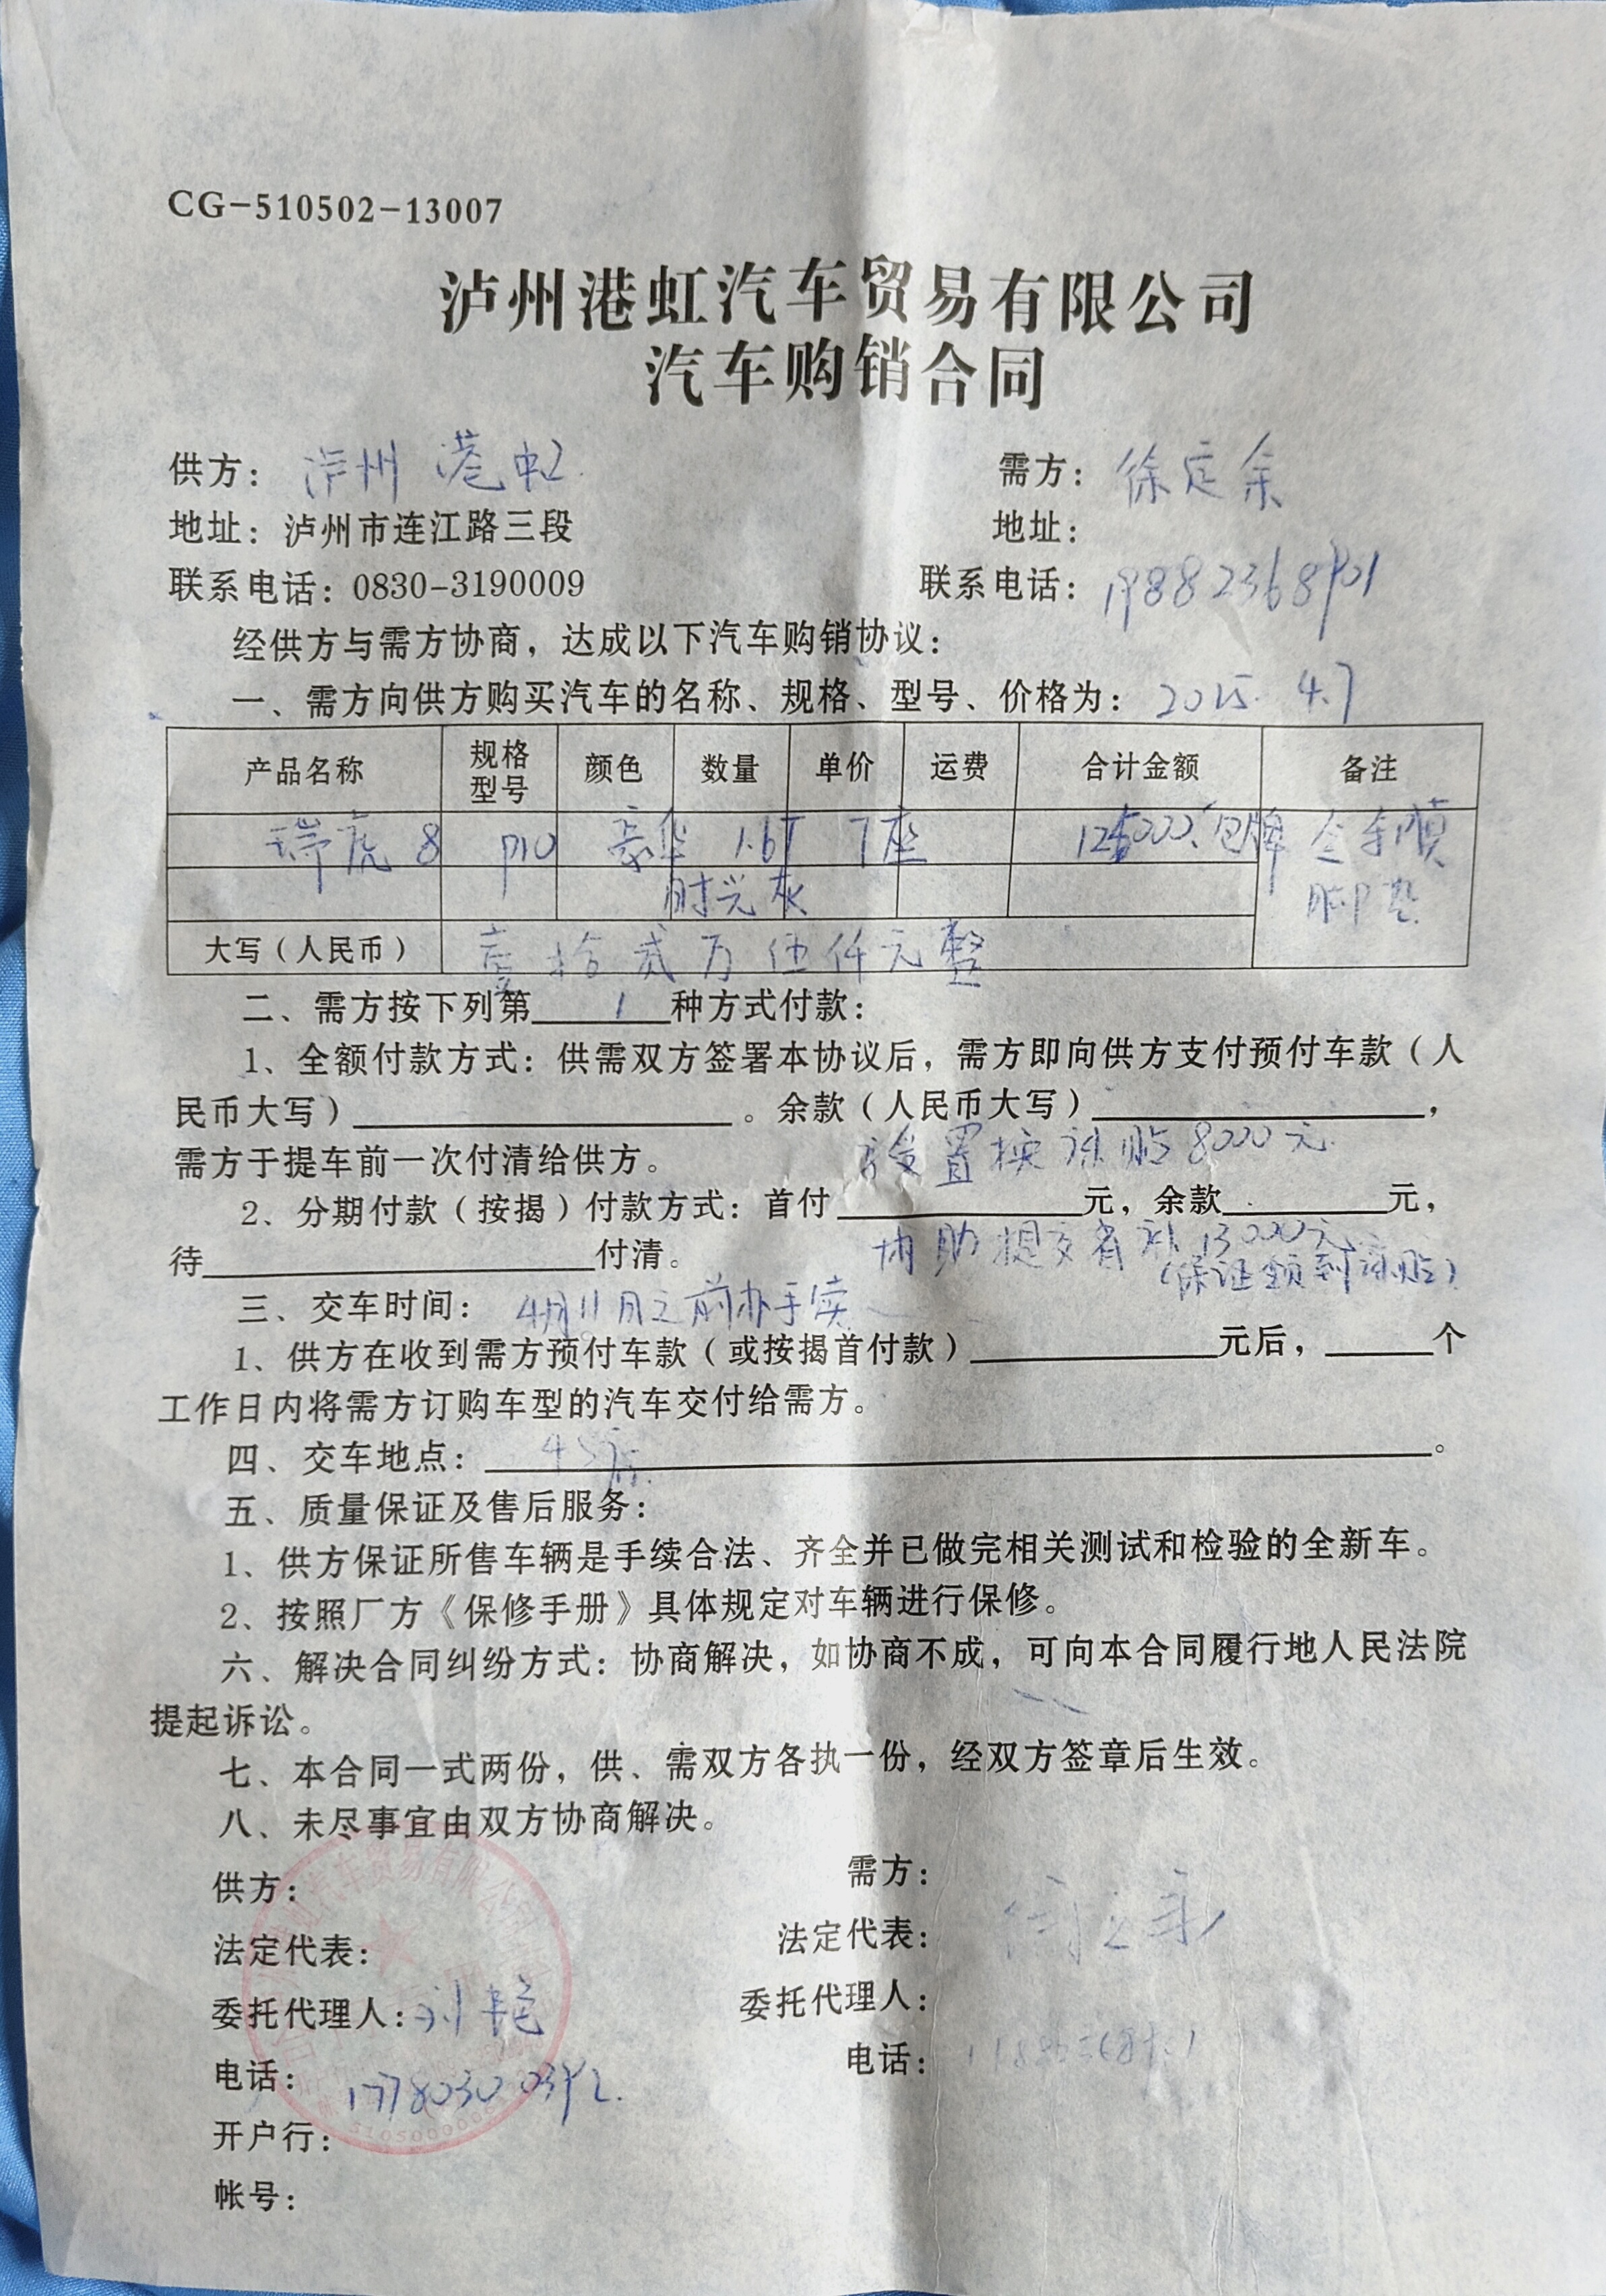 CG-510502-13007
泸州港虹汽车贸易有限公司
汽车购销合同
供方：泸州 港虹 需方：徐定余
地址：泸州市连江路三段 地址：
联系电话：0830-3190009 联系电话：
经供方与需方协商，达成以下汽车购销协议：
一、需方向供方购买汽车的名称、规格、型号、价格为：2025. 4.7
产品名称 规格型号 颜色 数量 单价 运费 合计金额 备注
瑞虎8 pro 豪华 1.6T 7座 125000 包牌 全车膜
时光灰 脚垫
大写（人民币） 壹拾贰万伍仟元整
二、需方按下列第1种方式付款：
1、全额付款方式：供需双方签署本协议后，需方即向供方支付预付车款（人
民币大写） 。余款（人民币大写） ，
需方于提车前一次付清给供方。 置换补贴8000元
2、分期付款（按揭）付款方式：首付 元，余款 元，
待 付清。 协助提交省补13000元
（保证领到补贴）
三、交车时间：4月11日之前办手续
1、供方在收到需方预付车款（或按揭首付款） 元后， 个
工作日内将需方订购车型的汽车交付给需方。
四、交车地点：4S店 。
五、质量保证及售后服务：
1、供方保证所售车辆是手续合法、齐全并已做完相关测试和检验的全新车。
2、按照厂方《保修手册》具体规定对车辆进行保修。
六、解决合同纠纷方式：协商解决，如协商不成，可向本合同履行地人民法院
提起诉讼。
七、本合同一式两份，供、需双方各执一份，经双方签章后生效。
八、未尽事宜由双方协商解决。
供方： 需方：
法定代表： 法定代表：
委托代理人：刘艳 委托代理人：
电话： 电话：
开户行：
帐号：